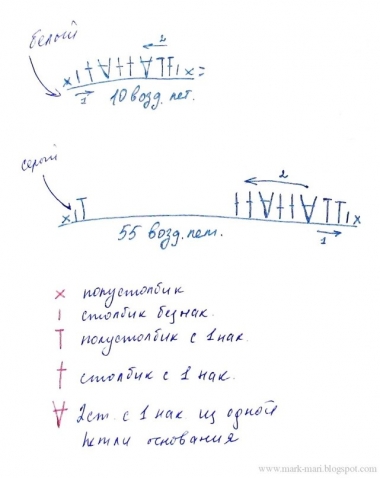 белый
2
1
10 возд. пет.
серый
2
55 возд. пет.
1
x полустолбик
ı столбик без нак.
T полустолбик с 1 нак.
† столбик с 1 нак.
2 ст. с 1 нак из одной
петли основания
www.mark-mari.blogspot.com